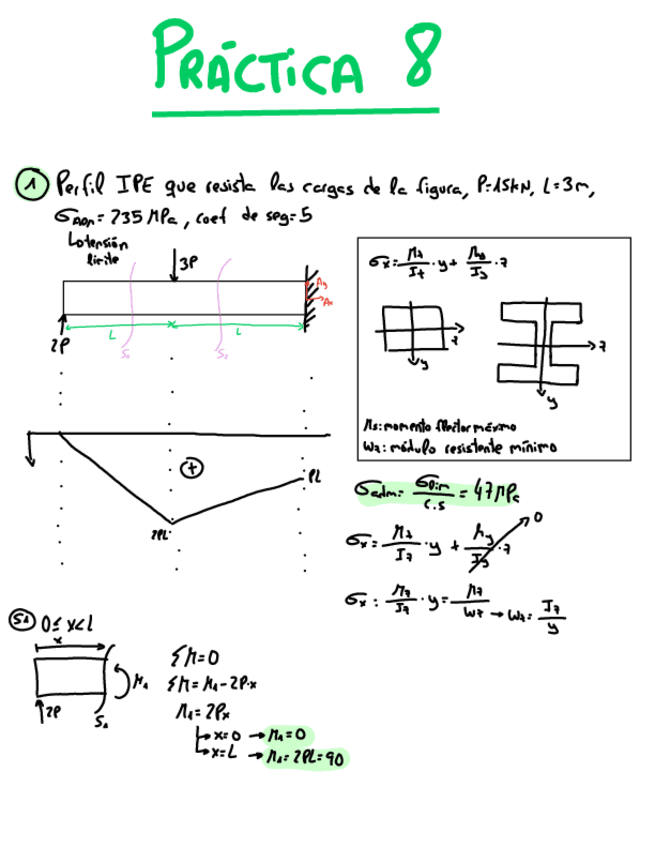 PRÁCTICA 8
1 Perfil IPE que resista las cargas de la figura, P=15kN, L=3m,
σADM = 235 MPa, coef de seg=5
Lo tensión
límite
3P
Ay
Ax
L
L
2P
S1
S2
σx = Mz/Iz · y + My/Iy · z
z
y
z
y
Mz: momento flector máximo
Wz: módulo resistente mínimo
+
PL
2PL
σadm = σlim/c.s = 47MPa
σx = Mz/Iz · y + My/Iy · z
0
σx: Mz/Iz · y = Mz/Wz → Wz = Iz/y
S1 0≤x<L
x
M1
2P
S1
ΣM=0
ΣM=M1-2P·x
M1=2Px
x=0 → M1=0
x=L → M1=2PL=90